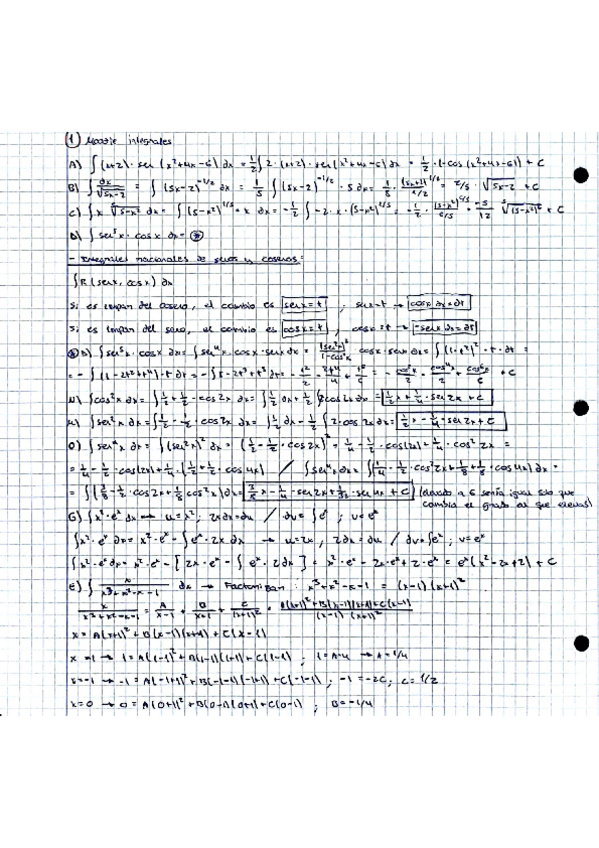 1 Moodle integrales
A) ∫(x+2)·sen(x²+4x-6)dx = 1/2∫2·(x+2)·sen(x²+4x-6)dx = 1/2·(-cos(x²+4x-6)) + C
B) ∫dx/√(5x-2) = ∫(5x-2)^(-1/2) dx = 1/5 ∫(5x-2)^(-1/2)·5dx = 2/5·√(5x-2) + C
C) ∫x ⁵√(5-x²) dx = ∫(5-x²)^(1/5)·x dx = -1/2∫-2·x·(5-x²)^(1/5) = -1/2·(5-x²)^(6/5)/(6/5) = -5/12 ⁵√(5-x²)⁶ + C
D) ∫sen⁵x·cosx dx = ⊛
- Integrales racionales de senos y cosenos:
∫R(senx, cosx) dx
Si es impar del coseno, el cambio es senx=t ; senx=t → cosx dx=dt
Si es impar del seno, el cambio es cosx=t ; cosx=t → -senx dx=dt
⊛ D) ∫sen⁵x·cosx dx = ∫sen⁴x·cosx·senx dx = cosx·senx dx = ∫(1-t²)²·t·dt =
= -∫(1-2t²+t⁴)·t dt = -∫t-2t³+t⁵ dt = -t²/2 + 2t⁴/4 - t⁶/6 = -cos²x/2 + cos⁴x/2 - cos⁶x/6 + C
N) ∫cos²x dx = ∫1/2+1/2·cos2x dx = ∫1/2 dx + 1/2∫2cos2x dx = 1/2x+1/4·sen2x+C
M) ∫sen²x dx = ∫1/2-1/2·cos2x dx = ∫1/2 dx - 1/2∫2·cos2x dx = 1/2x-1/4·sen2x+C
O) ∫sen⁴x dx = ∫(sen²x)² dx = (1/2-1/2·cos2x)² = 1/4-1/2·cos(2x)+1/4·cos²2x =
= 1/4-1/2·cos(2x)+1/4·(1/2+1/2·cos4x) / ∫sen⁴x dx = ∫(1/4-1/2·cos2x+1/8+1/8·cos4x)dx =
= ∫(3/8-1/2·cos2x+1/8 cos²x)dx = 3/8x-1/4·sen2x+1/32·sen4x+C (elevado a 6 sería igual solo que
cambia el grado al que elevas)
G) ∫x²·eˣ dx → u=x²; 2xdx=du / dv=∫eˣ ; v=eˣ
∫x²·eˣ dx = x²·eˣ - ∫eˣ·2x dx → u=2x, 2dx=du / dv=∫eˣ; v=eˣ
∫x²·eˣ dx = x²·eˣ - [2x·eˣ - ∫eˣ·2dx] = x²·eˣ-2x·eˣ+2·eˣ = eˣ(x²-2x+2) + C
E) ∫x/(x³+x²-x-1) dx → Factorizan: x³+x²-x-1 = (x-1)·(x+1)²
x/(x³+x²-x-1) = A/(x-1) + B/(x+1) + C/(x+1)² = (A(x+1)²+B(x-1)(x+1)+C(x-1))/((x-1)·(x+1)²)
x = A(x+1)²+B(x-1)(x+1)+C(x-1)
x=1 → 1=A(1+1)²+B(1-1)(1+1)+C(1-1); 1=A·4 → A=1/4
x=-1 → -1=A(-1+1)²+B(-1-1)(-1+1)+C(-1-1); -1=-2C; C=1/2
x=0 → 0=A(0+1)²+B(0-1)(0+1)+C(0-1); B=-1/4